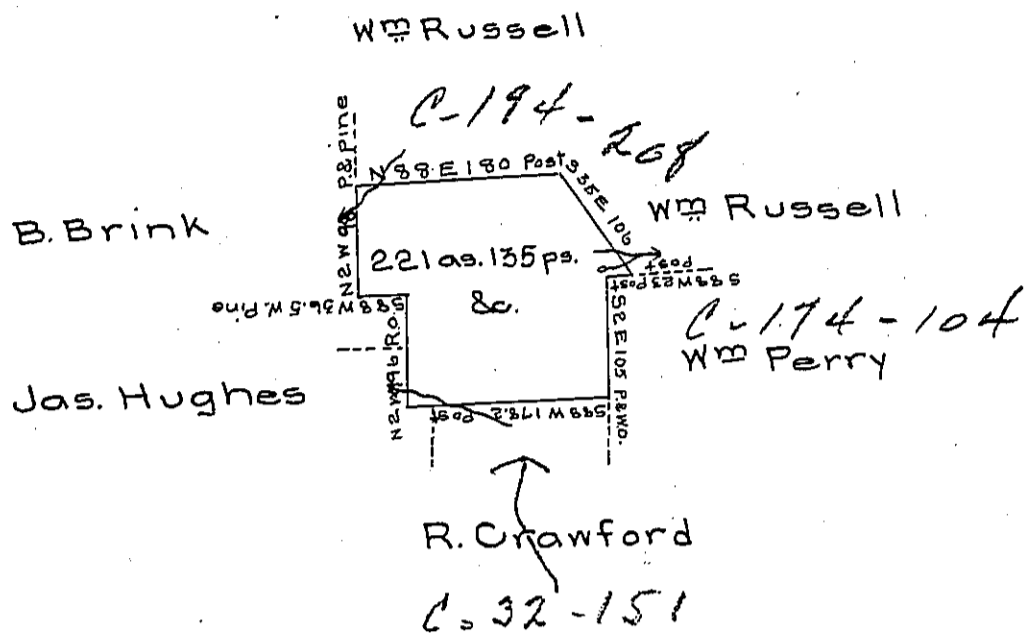 Wm Russell
C-194-208
P. & Pine
N 88 E 180 Post
S 35 E 106
Wm Russell
B. Brink
N 2 W 98
221 as. 135 ps.
&c.
S 88 W 23 Post
Post
S 88 W 36.5 W. Pine
C-174-104
Wm Perry
S 2 E 105 P. & W.O.
Jas. Hughes
N 2 W 96 R.O.
S 88 W 178.2 Post
R. Crawford
C-32-151